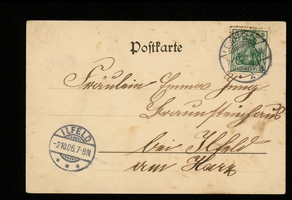 Postkarte
Fräulein Emma Jung
Braunsteinhaus
bei Ilfeld
am Harz
ILFELD
-2.10.06.7-8N